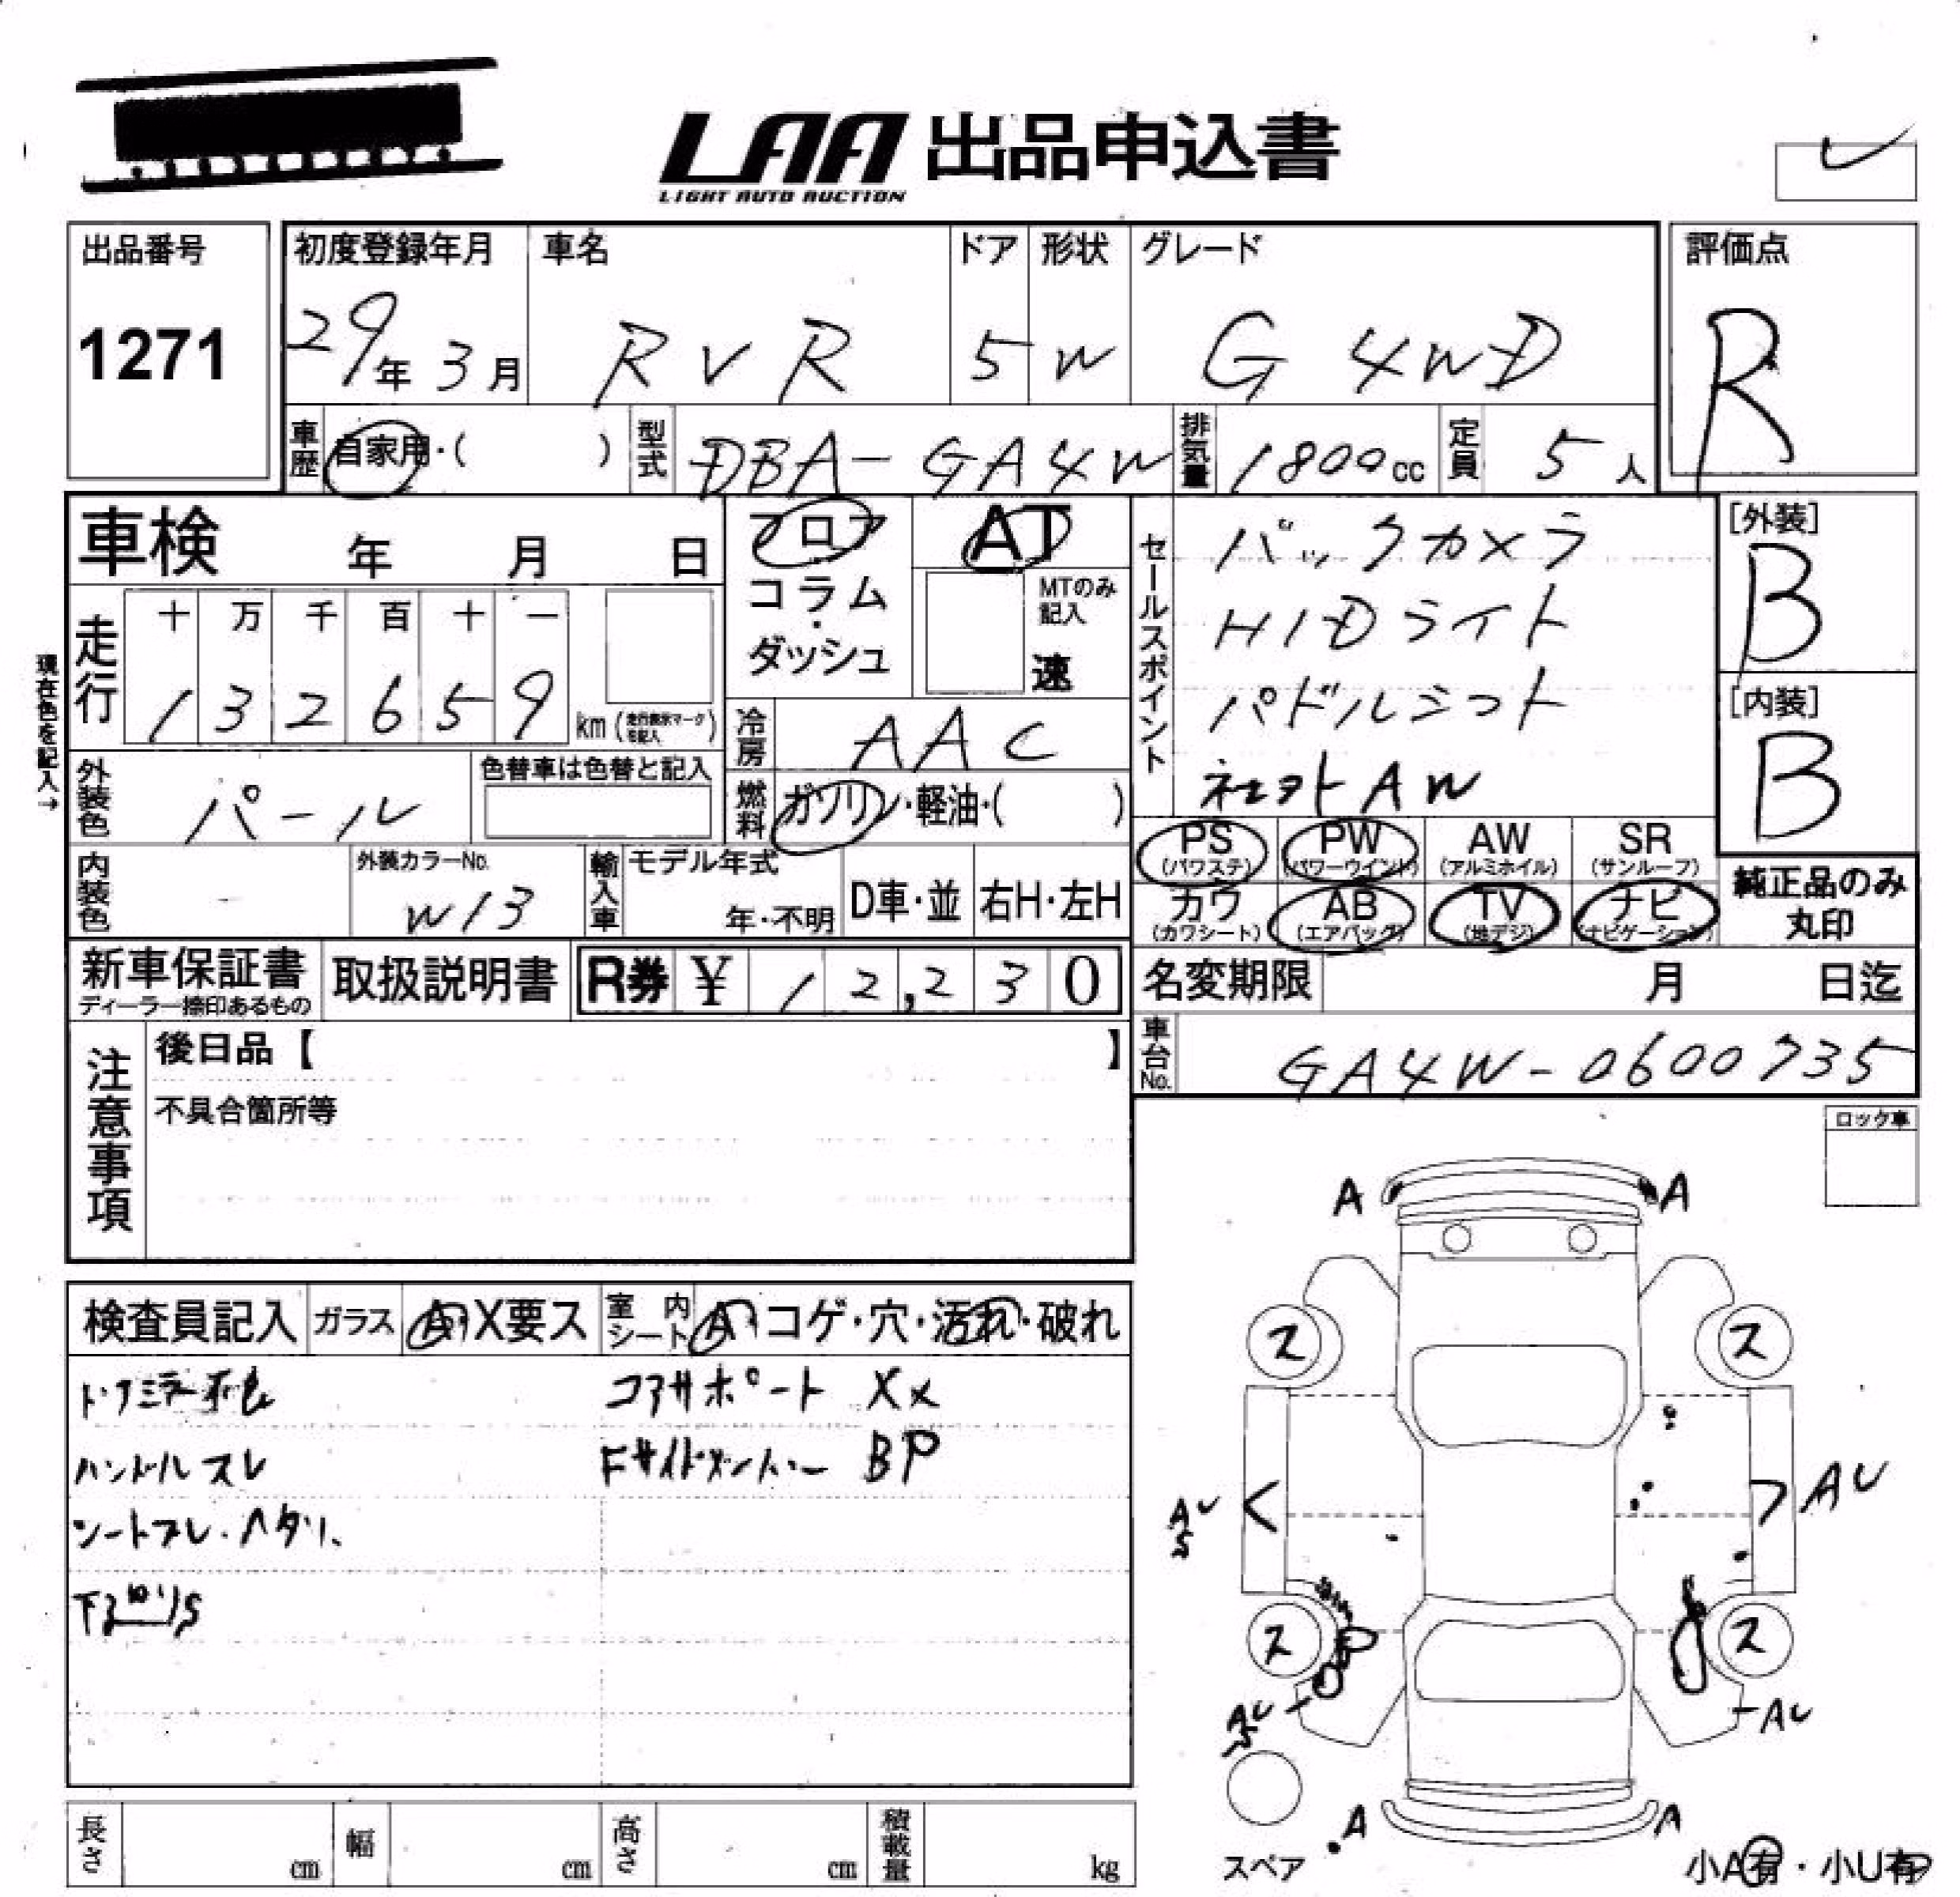 LAA 出品申込書
LIGHT AUTO AUCTION
出品番号
1271
初度登録年月 車名 ドア 形状 グレード 評価点
29年 3月 RVR 5 W G 4WD R
車歴 自家用・( ) 型式 DBA-GA4W 排気量 1800cc 定員 5人
車検 年 月 日
フロア AT
コラム・ダッシュ MTのみ記入 速
セールスポイント
バックカメラ
HIDライト
パドルシフト
社外AW
[外装]
B
[内装]
B
現在色を記入→
走行 十 万 千 百 十 一
1 3 2 6 5 9 km (走行表示マークを記入)
冷房 AAC
外装色 パール 色替車は色替と記入
燃料 ガソリン・軽油・( )
PS (パワステ) PW (パワーウインド) AW (アルミホイル) SR (サンルーフ)
カワ (カワシート) AB (エアバッグ) TV (地デジ) ナビ (ナビゲーション)
純正品のみ丸印
内装色 - 外装カラーNo. W13 輸入車 モデル年式 年・不明 D車・並 右H・左H
新車保証書 ディーラー捺印あるもの 取扱説明書 R券 ¥ 12,230
名変期限 月 日迄
車台No. GA4W-0600735
注意事項
後日品【 】
不具合箇所等
ロック車
検査員記入 ガラス A・X要ス 室内シート A・コゲ・穴・汚れ・破れ
ドアミラー不良 コアサポート XX
ハンドルスレ Fサイドメンバー BP
シートスレ・ヘタリ
下廻りS
A A
ス ス
AU S AU
ス ス
AU S AU
A A
スペア
小A有・小U有
長さ cm 幅 cm 高さ cm 積載量 kg